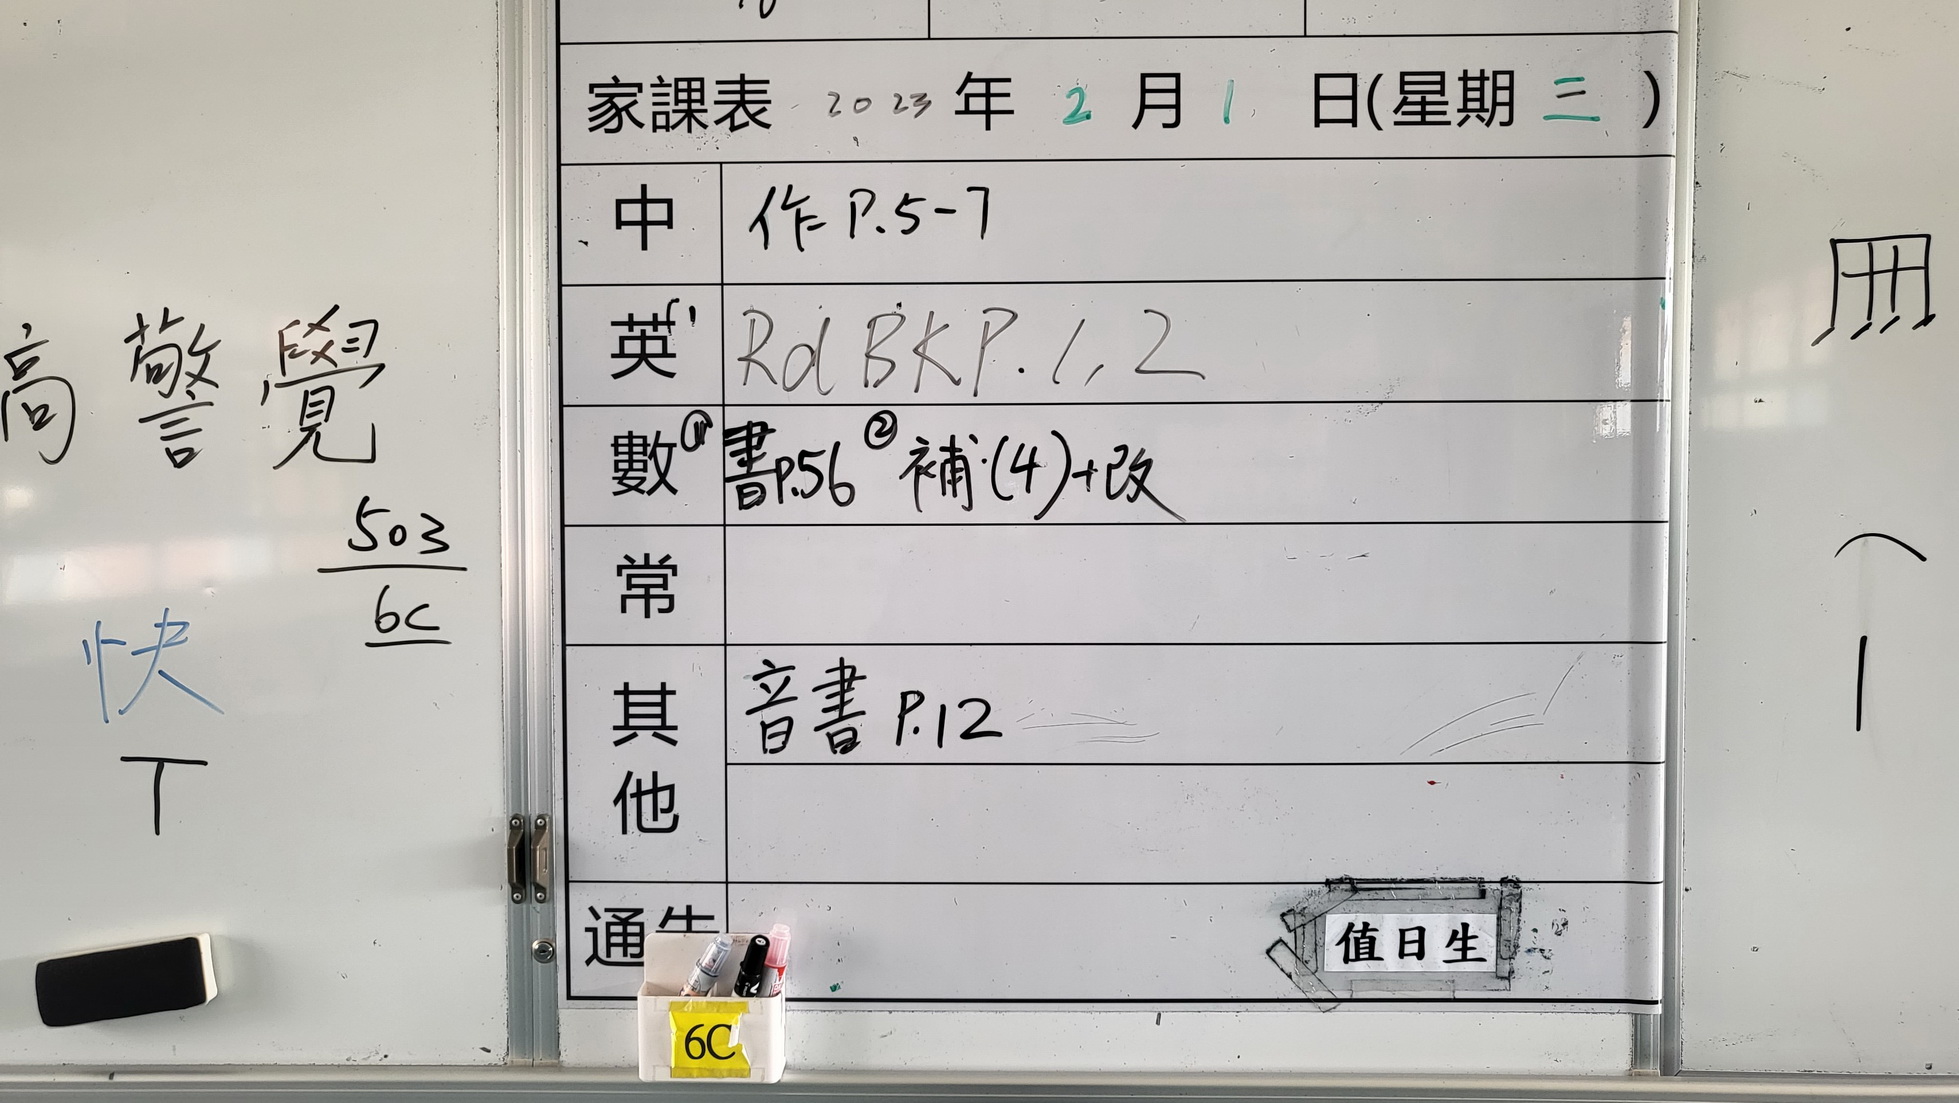 家課表 2023 年 2 月 1 日(星期 三 )
中 作 P.5-7
英 Rd BK P.1,2
數 ① 書P.56 ② 補(4)+改
常
其他 音書 P.12
通告
值日生
6C
高警覺
503
6C
快
T